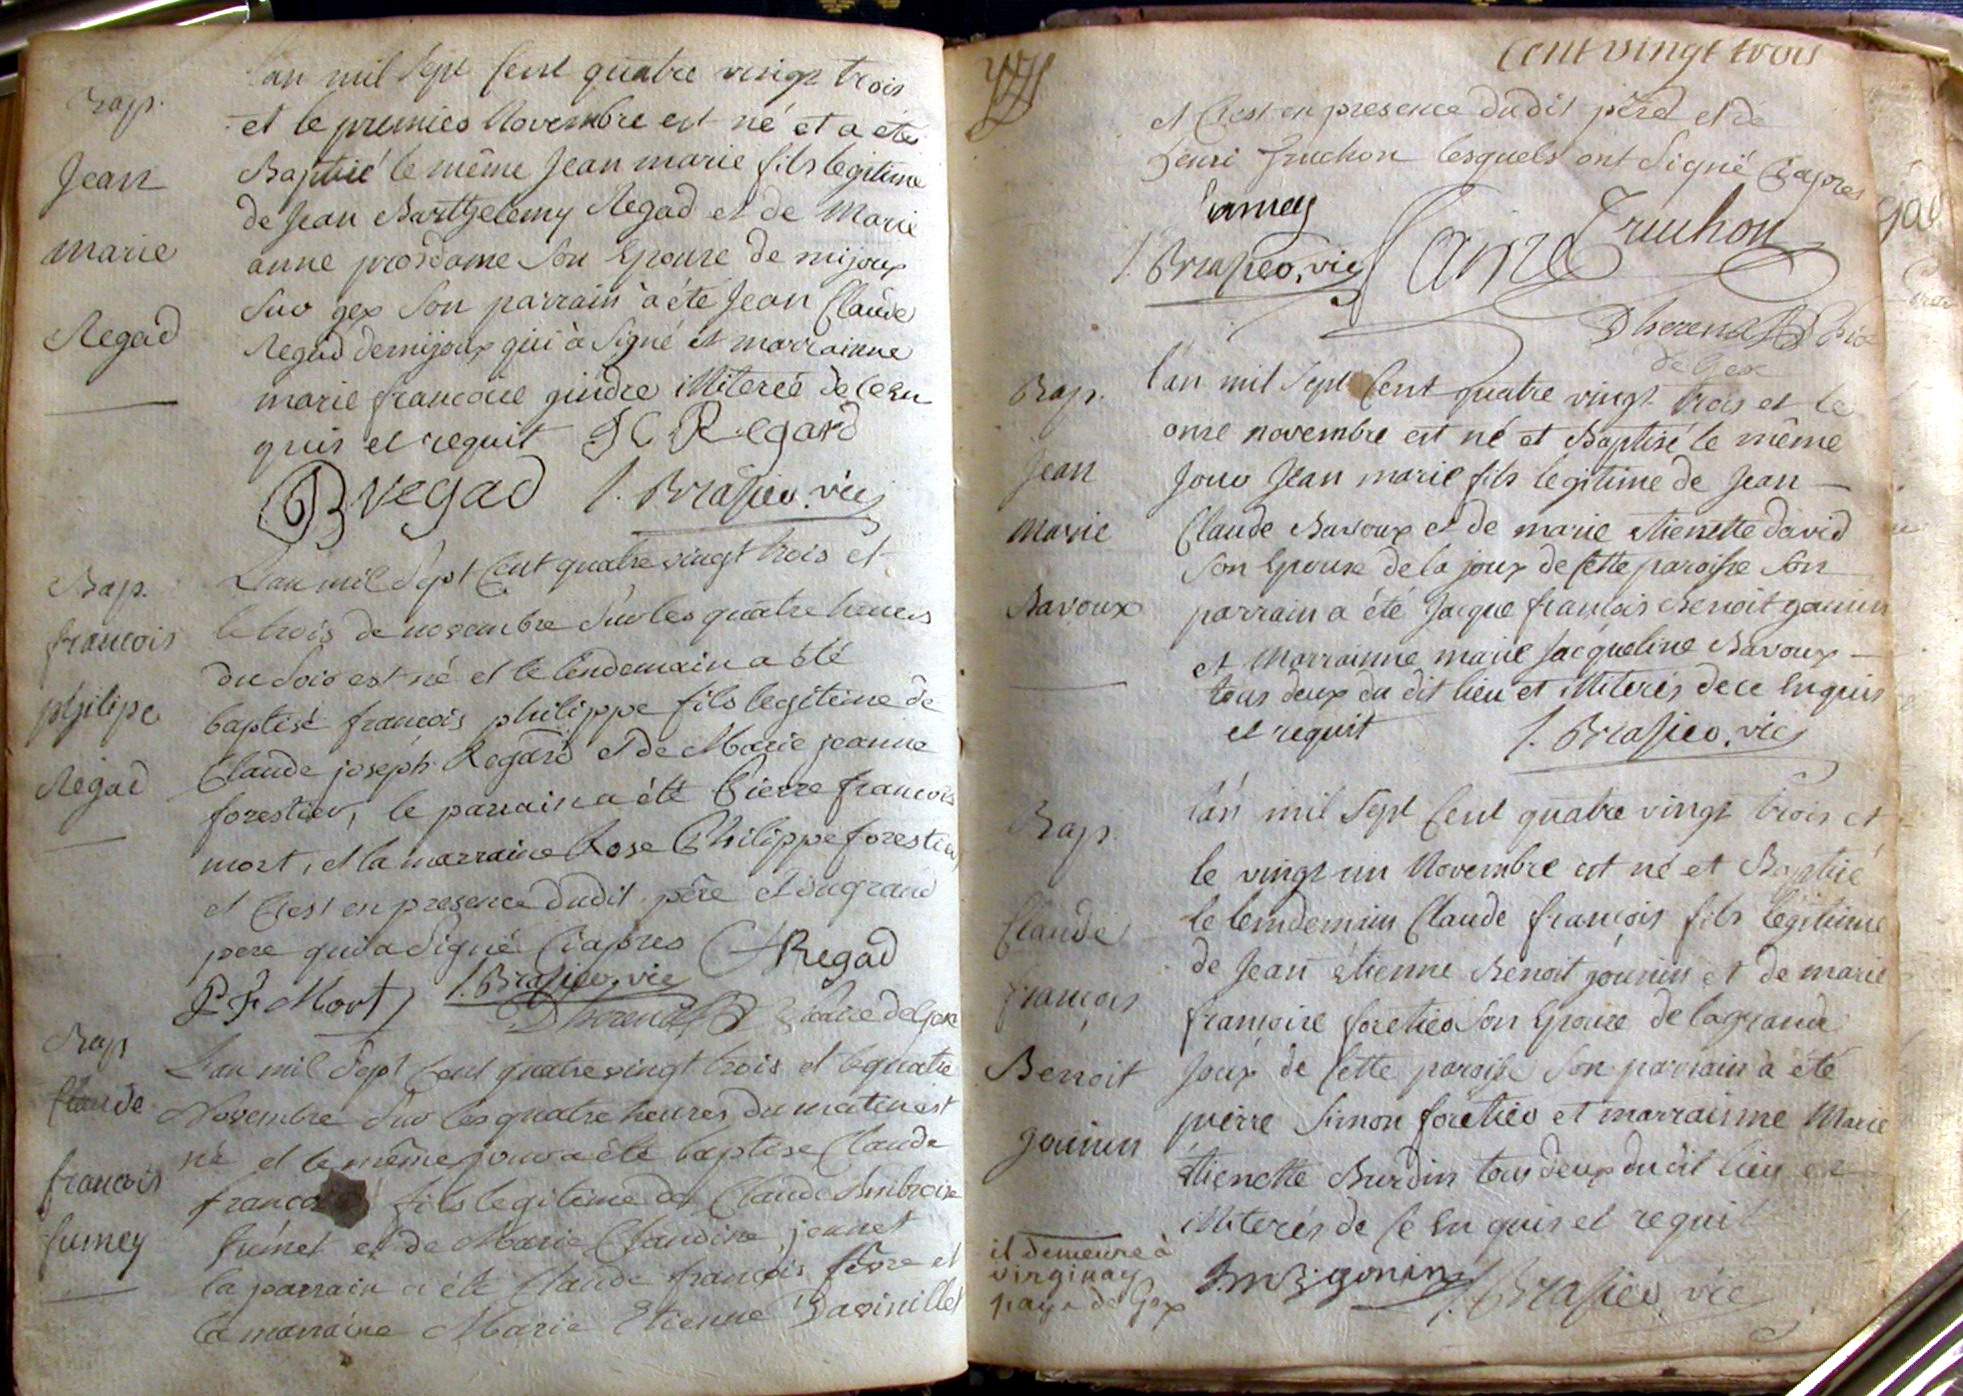 Bap.
Jean
marie
Regad
L'an mil Sept Cent quatre vingt trois
et le premier Novembre est né et a eté
Baptisé le même Jean marie fils legitime
de Jean Barthelemy Regad et de Marie
anne prosdame Son Epouse de mijoux
Sur gex Son parrain a été Jean Claude
Regad demijoux qui à Signé et marrainne
marie francoise gindre illiterée de ce en
quis et requit J C Regard
JB regad J. Brasier. vic
Bap.
francois
philipe
Regad
L'an mil Sept Cent quatre vingt trois et
le trois de novembre Sur les quatre heures
du Soir est né et le lendemain a été
baptisé francois philippe fils legitime de
Claude joseph Regard et de Marie jeanne
forestier, le parrain a été Pierre francois
mort, et la marraine Rose Philippe forestier
et C'est en presence dudit père et du grand
pere qui a Signé Ciapres CJ Regad
P F Mort J. Brasier, vic
de Gex
Bap
Claude
francois
fumey
L'an mil Sept Cent quatre vingt trois et le quatre
Novembre Sur les quatre heures du matin est
né et le même jour a été baptisé Claude
francois fils legitime de Claude Ambroise
fumet et de Marie Claudine jonnet
la parrain a été Claude francois fevre et
la marraine Marie Etienne Bavouillet
Cent vingt trois
et C'est en presence dudit père et de
henri Truchon lesquels ont Signé Ciapres
fumey
J. Brasier, vic Truchon
de Gex
Bap.
Jean
Marie
Bavoux
l'an mil Sept Cent quatre vingt trois et le
onze novembre est né et Baptisé le même
Jour Jean marie fils legitime de Jean
Claude Bavoux et de marie etienette david
Son Epouse de la joux de Cette paroisse Son
parrain a été Jacque francois Benoit gounin
et Marrainne marie Jacqueline Bavoux
tous deux du dit lieu et illiterés de ce Enquis
et requit J. Brasier, vic
Bap.
Claude
françois
Benoit
gounin
l'an mil Sept Cent quatre vingt trois et
le vingt un Novembre est né et Baptisé
le lemdemain Claude françois fils légitime
de Jean étienne Benoit gounin et de marie
françoise foretier Son Epouse de la grande
Joux de Cette paroisse Son parrain à été
pierre Simon foretier et marrainne Marie
étienette Burdin tous deux du dit lieu et
illiterés de Ce En quis et requit
il demeure à
virginay
pays de Gex
J. Brasier. vic